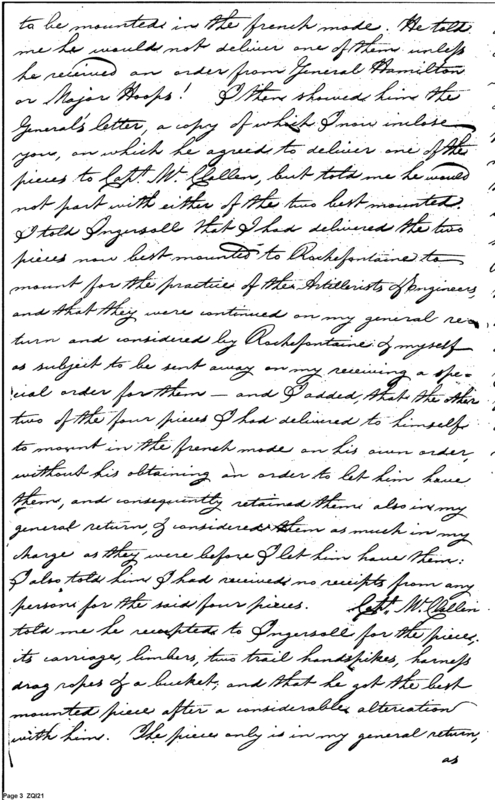 to be mounted in the french mode. He told
me he would not deliver one of them unless
he received an order from General Hamilton
or Major Hoops! I then showed him the
General's letter, a copy of which I now inclose
you, on which he agreed to deliver one of the
pieces to Capt. Mc. Clallen, but told me he would
not part with either of the two best mounted.
I told Ingersoll that I had delivered the two
pieces now best mounted to Rochefontaine to
mount for the practice of the Artillerists & Engineers,
and that they were continued on my general re-
turn and considered by Rochefontaine & myself
as subject to be sent away on my receiving a spe-
cial order for them — and I added, that the other
two of the four pieces I had delivered to himself
to mount in the french mode on his own order,
without his obtaining an order to let him have
them, and consequently retained them also in my
general return, & considered them as much in my
charge as they were before I let him have them:
I also told him I had received no receipts from any
person for the said four pieces. Capt. Mc. Clallen
told me he receipted to Ingersoll for the piece,
its carriage, limbers, two trail handspikes, harness
drag ropes & a bucket, and that he got the best
mounted piece after a considerable altercation
with him. The piece only is in my general return,
as
Page 3 ZQI21